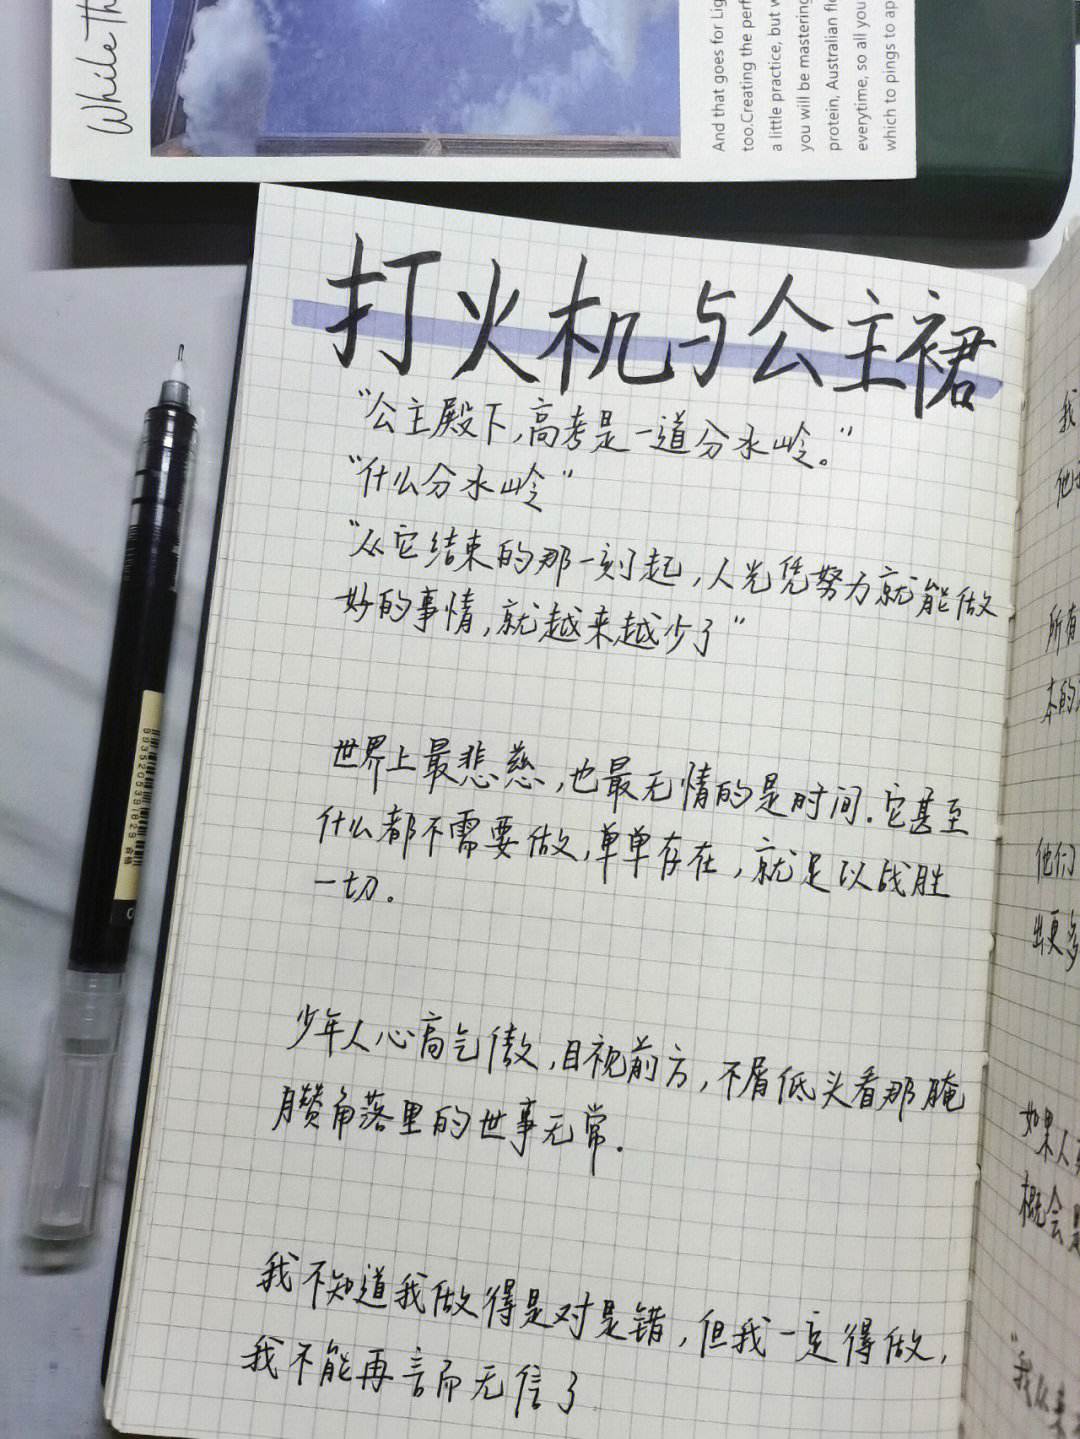 While Th
And that goes for Lig
too.Creating the perf
a little practice, but w
you will be mastering
protein, Australian fle
everytime, so all you
which to pings to ap
打火机与公主裙
“公主殿下,高考是一道分水岭。”
“什么分水岭”
“从它结束的那一刻起,人光凭努力就能做
妙的事情,就越来越少了”
世界上最悲慈,也最无情的是时间.它甚至
什么都不需要做,单单存在,就足以战胜
一切.
少年人心高气傲,目视前方,不屑低头看那腌
臜角落里的世事无常.
我不知道我做得是对是错,但我一定得做,
我不能再言而无信了
我
他
所有
本的
他们
出更多
如果人
概会
“我从来